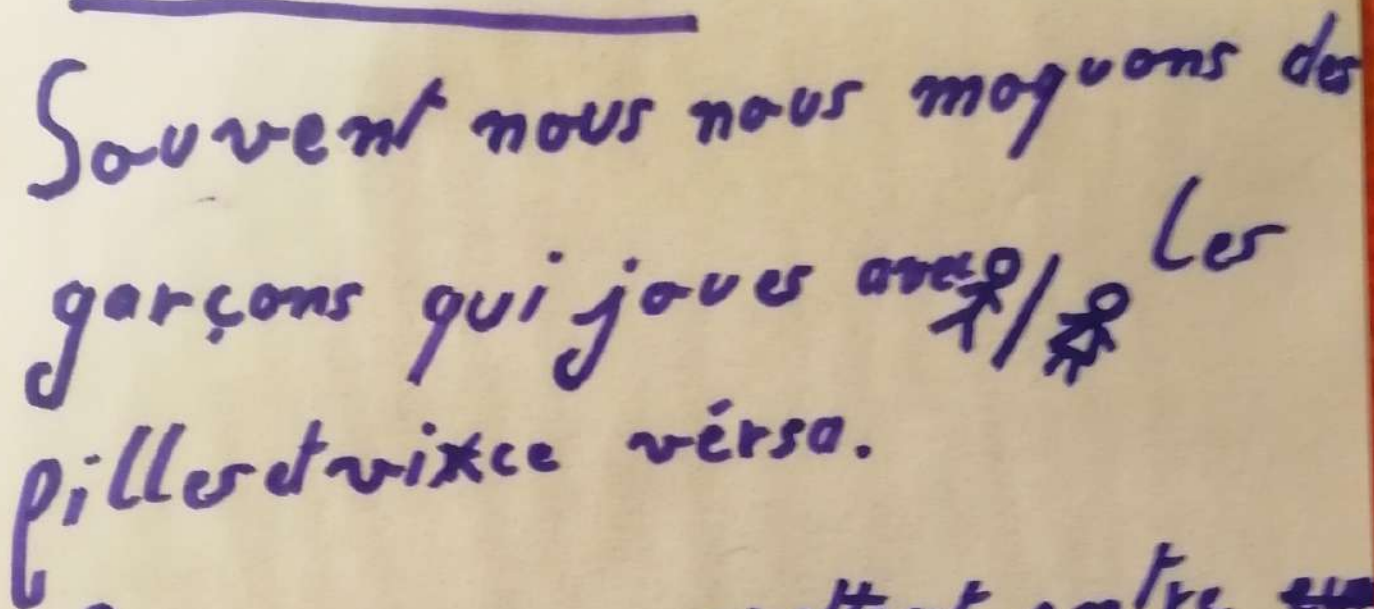 Souvent nous nous moquons des
garçons qui joues avec les
filles et vixce vérsa.
entre